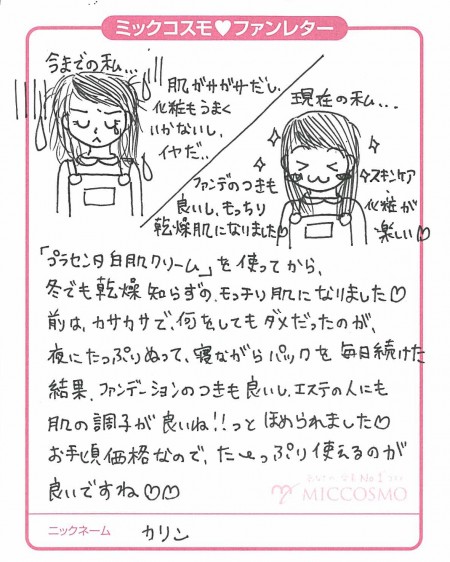 ミックコスモ♥ファンレター
今までの私...
肌がガサガサだし、
化粧もうまく
いかないし、
イヤだ..
現在の私...
ファンデのつきも
良いし、もっちり
乾燥肌になりました♡
スキンケア
化粧が
楽しい♡
「プラセンタ白肌クリーム」を使ってから、
冬でも乾燥知らずの、モッチリ肌になりました♡
前は、カサカサで、何をしてもダメだったのが、
夜にたっぷりぬって、寝ながらパックを毎日続けた
結果、ファンデーションのつきも良いし、エステの人にも
肌の調子が良いね!!っとほめられました♡
お手頃価格なので、た〜っぷり使えるのが
良いですね♡♡
MICCOSMO
ニックネーム カリン